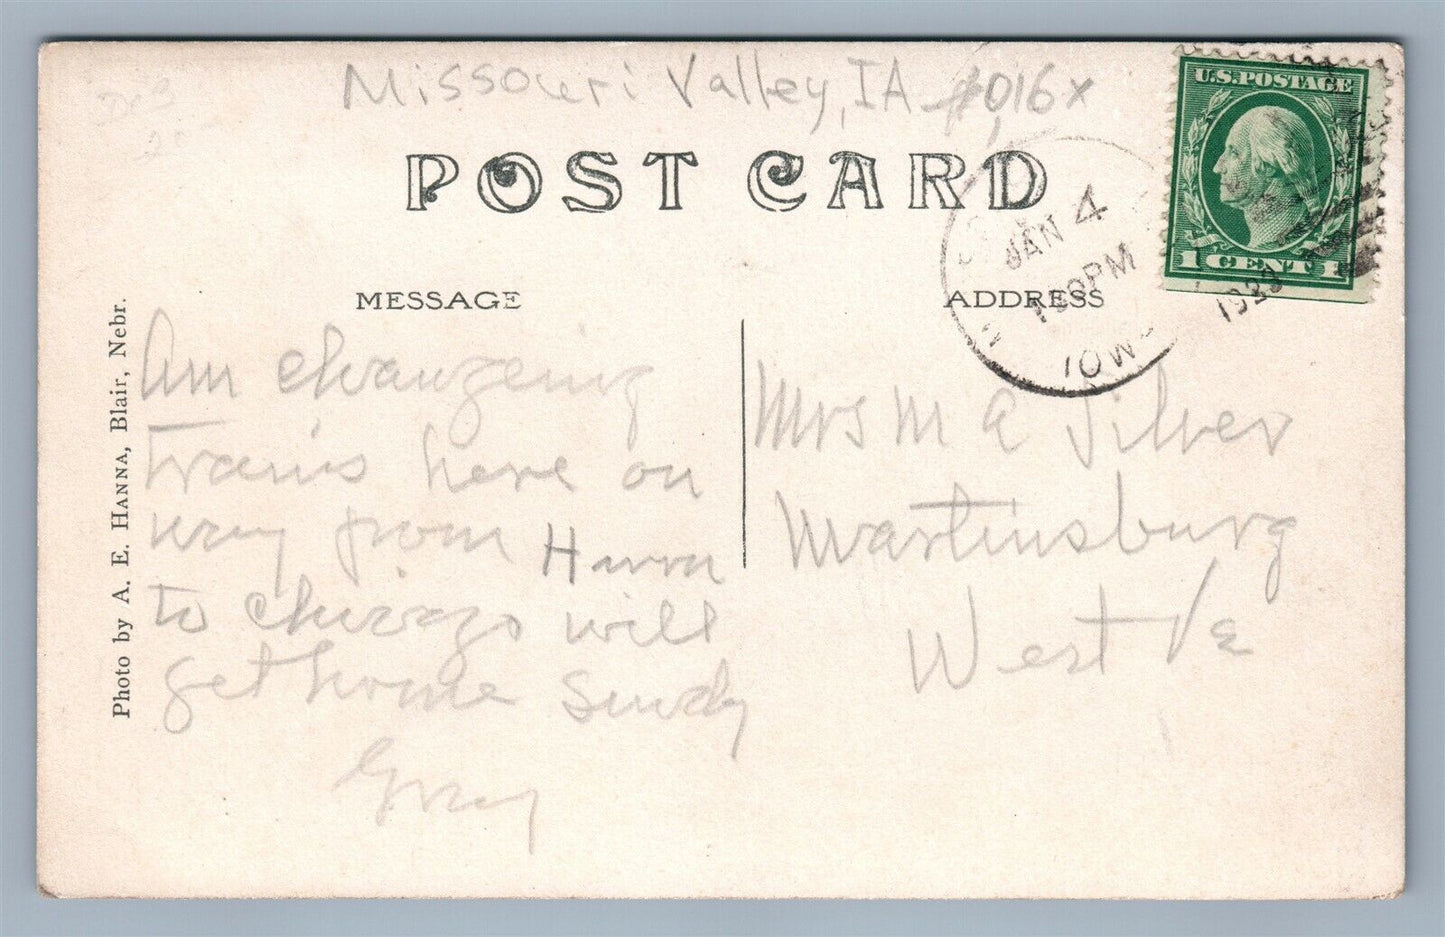 Missouri Valley, IA
POST CARD
U.S. POSTAGE
1 CENT 1
JAN 4
PM
IOWA
MESSAGE
ADDRESS
Photo by A. E. HANNA, Blair, Nebr.
Am changeing
trains here on
way from Huron
to chicago will
get home Sundy
Gray
Mrs M A Silver
Martinsburg
West Va